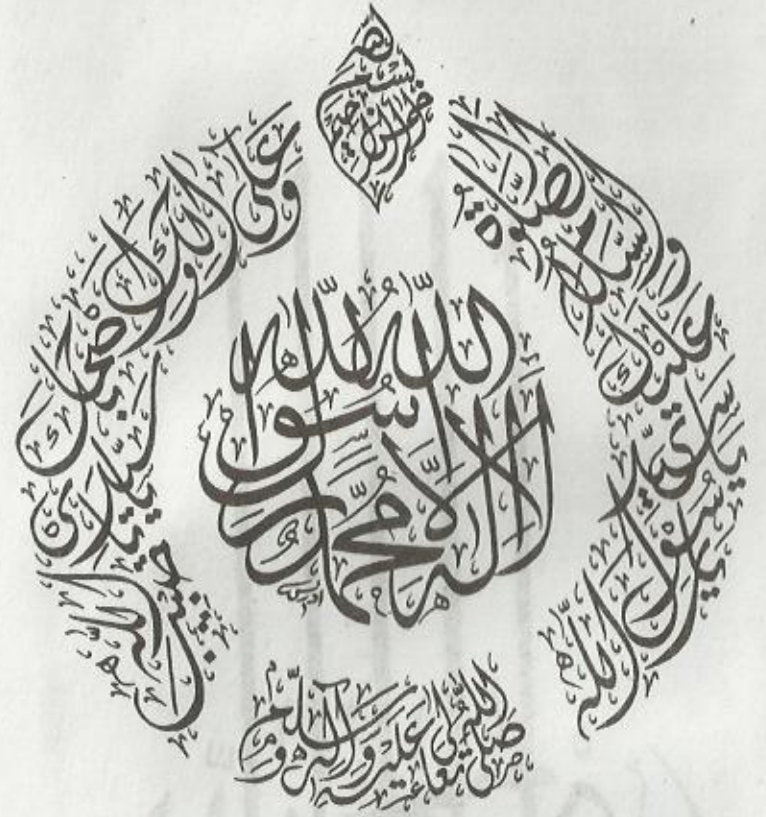 بسم الله الرحمن الرحيم
الصلوة والسلام عليك يا سيدي يا رسول الله
وعلى آلك واصحابك يا سيدي يا حبيب الله
لا إله إلا الله محمد رسول الله
صلى الله تعالى عليه وآله وسلم